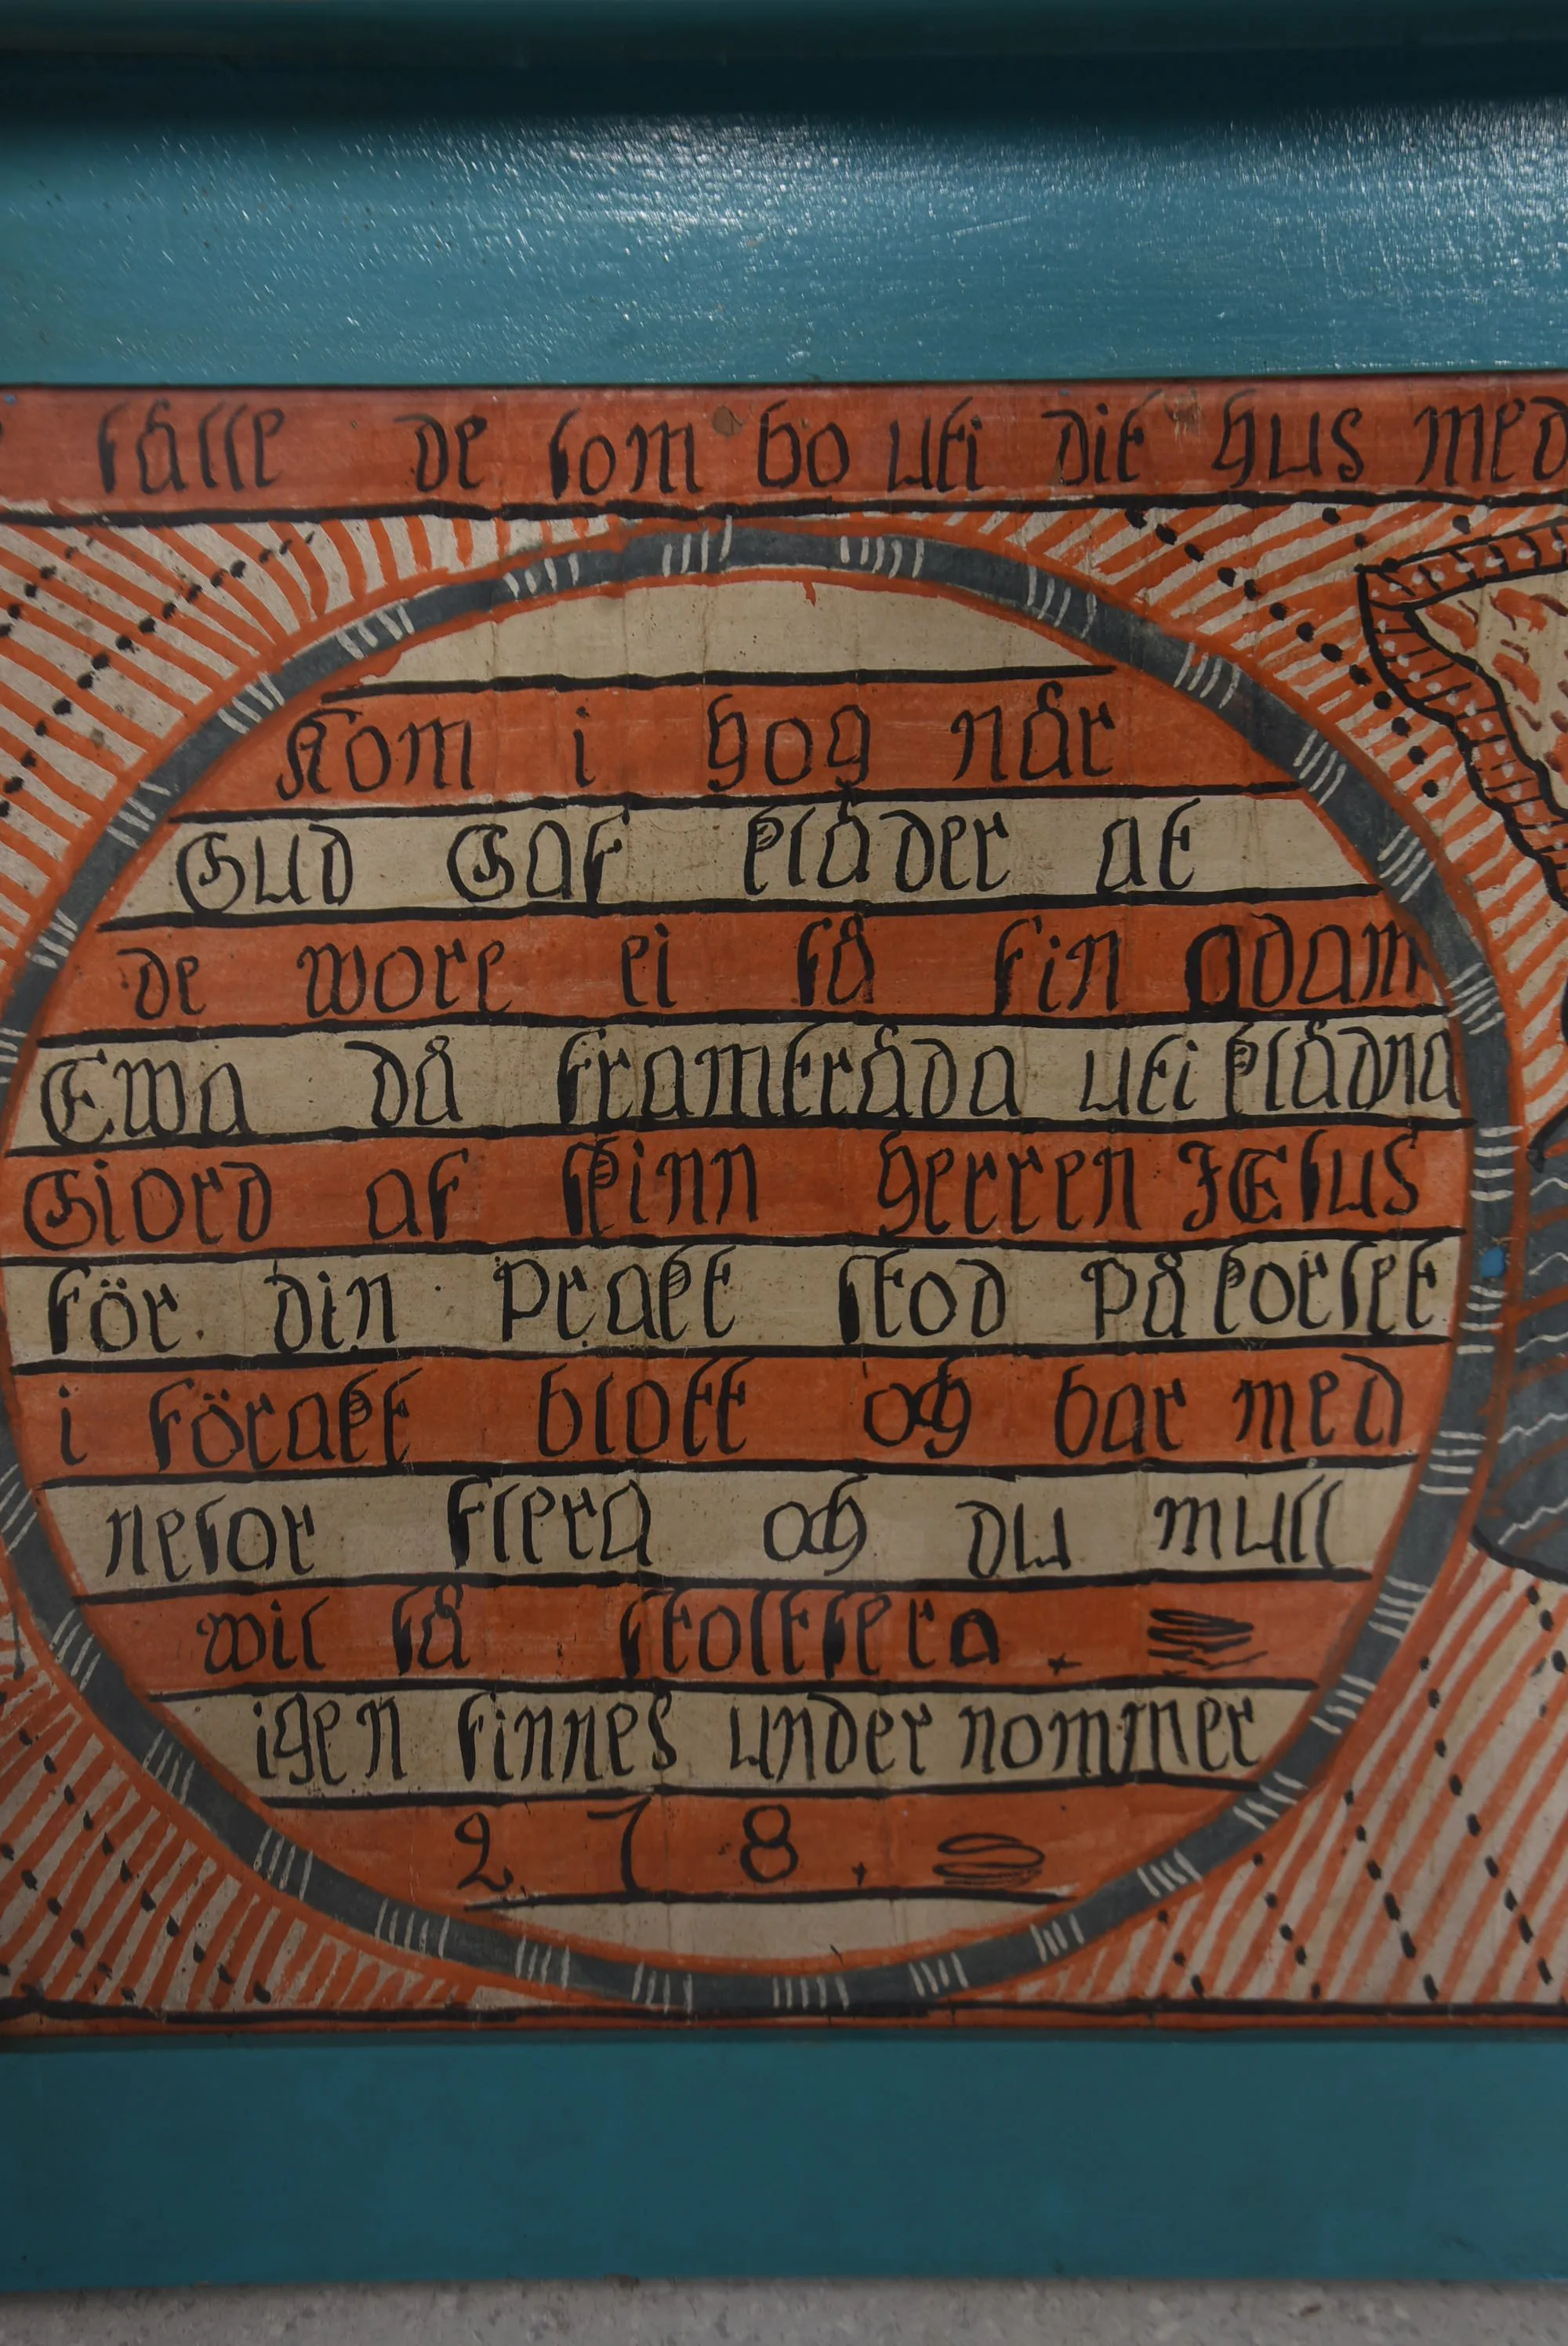 sålle de som bo uti dit hus med
Kom i hog når
Gud Gaf klåder at
de wore ei så fin adam
Ewa då framtråda uti klådna
Giord af skinn herren JEsus
för din prakt stod på korset
i förakt blott och bar med
nesor flera och du mull
wil så stoltsera.
igen finnes under nommer
2 7 8.